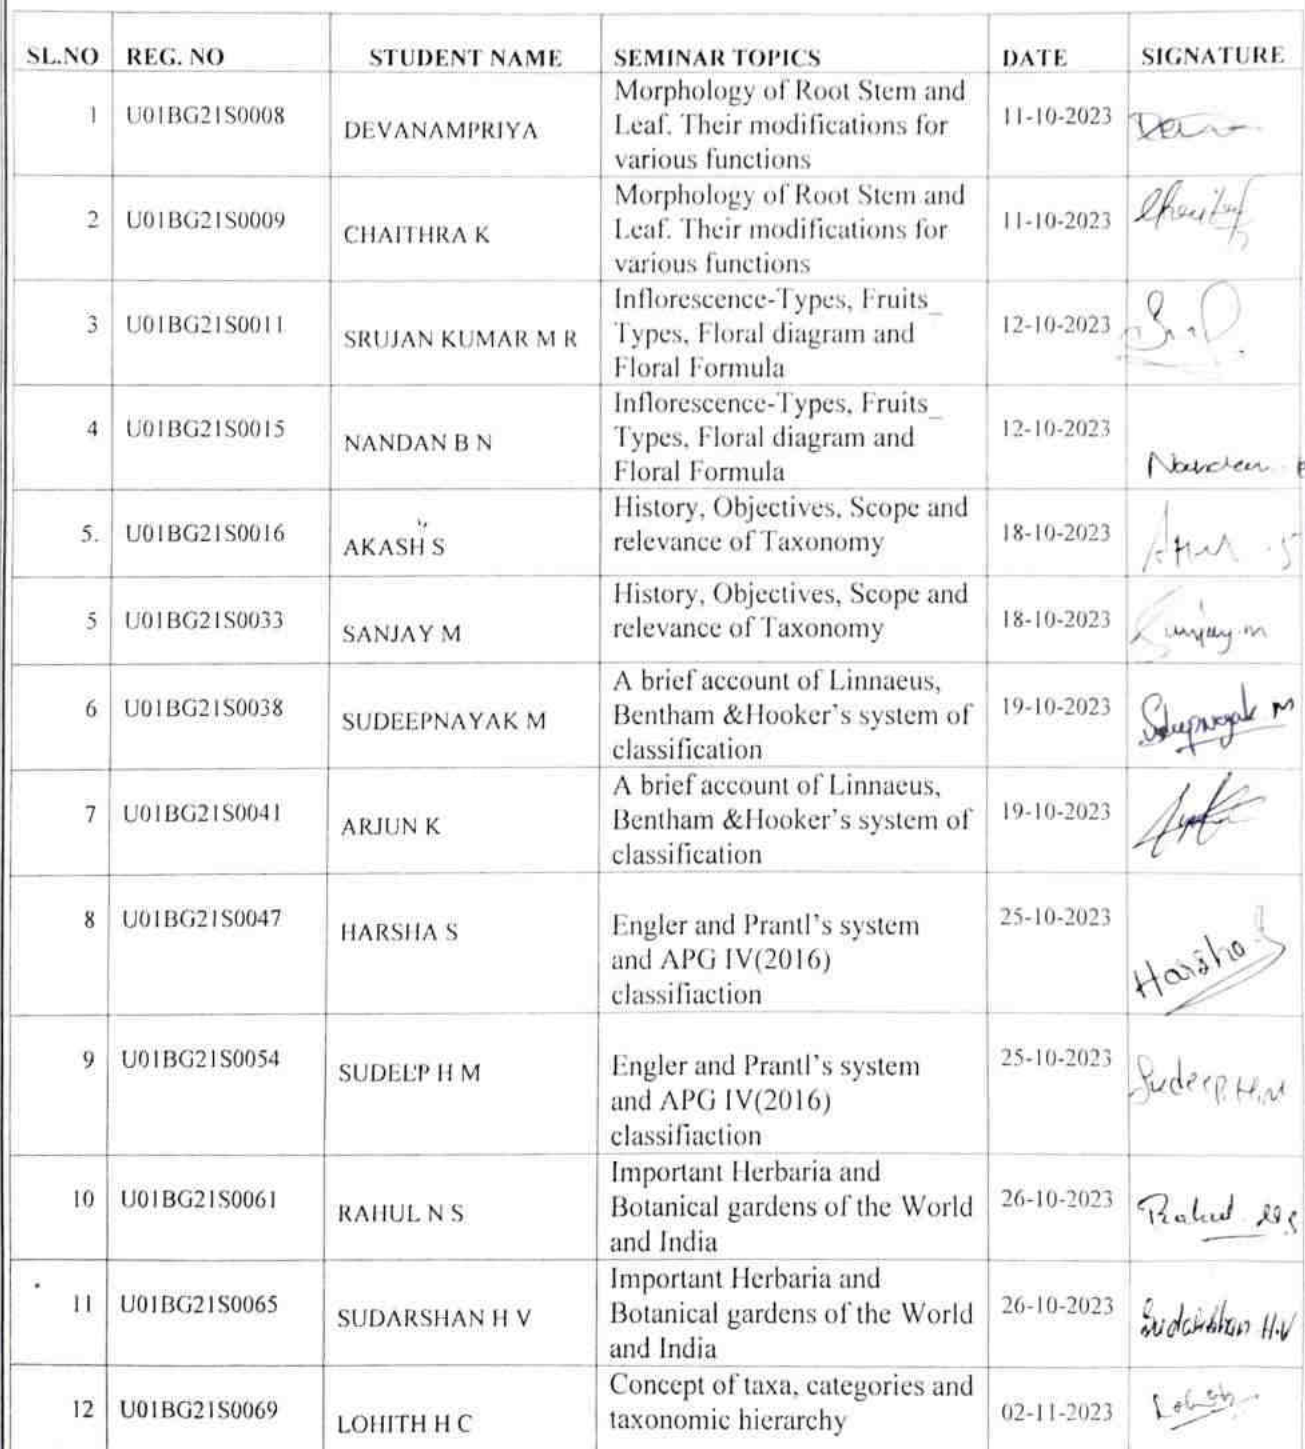 SL.NO REG. NO STUDENT NAME SEMINAR TOPICS DATE SIGNATURE
1 U01BG21S0008 DEVANAMPRIYA Morphology of Root Stem and
Leaf. Their modifications for
various functions 11-10-2023
2 U01BG21S0009 CHAITHRA K Morphology of Root Stem and
Leaf. Their modifications for
various functions 11-10-2023
3 U01BG21S0011 SRUJAN KUMAR M R Inflorescence-Types, Fruits_
Types, Floral diagram and
Floral Formula 12-10-2023
4 U01BG21S0015 NANDAN B N Inflorescence-Types, Fruits_
Types, Floral diagram and
Floral Formula 12-10-2023 Nandan
5. U01BG21S0016 AKASH S History, Objectives, Scope and
relevance of Taxonomy 18-10-2023
5 U01BG21S0033 SANJAY M History, Objectives, Scope and
relevance of Taxonomy 18-10-2023 Sanjay.m
6 U01BG21S0038 SUDEEPNAYAK M A brief account of Linnaeus,
Bentham &Hooker's system of
classification 19-10-2023 Sudeepnayak M
7 U01BG21S0041 ARJUN K A brief account of Linnaeus,
Bentham &Hooker's system of
classification 19-10-2023
8 U01BG21S0047 HARSHA S Engler and Prantl's system
and APG IV(2016)
classifiaction 25-10-2023 Harsha S
9 U01BG21S0054 SUDEEP H M Engler and Prantl's system
and APG IV(2016)
classifiaction 25-10-2023 Sudeep.H.M
10 U01BG21S0061 RAHUL N S Important Herbaria and
Botanical gardens of the World
and India 26-10-2023 Rahul
11 U01BG21S0065 SUDARSHAN H V Important Herbaria and
Botanical gardens of the World
and India 26-10-2023 Sudarshan H.V
12 U01BG21S0069 LOHITH H C Concept of taxa, categories and
taxonomic hierarchy 02-11-2023